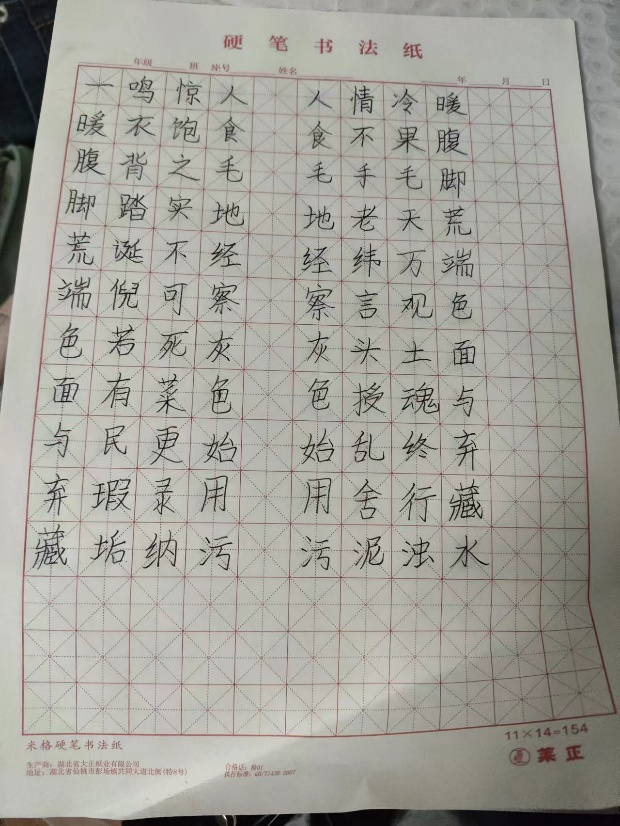 硬笔书法纸
年级 班 座号 姓名 年 月 日
一鸣惊人 人情冷暖
暖衣饱食 食不果腹
腹背之毛 毛手毛脚
脚踏实地 地老天荒
荒诞不经 经纬万端
端倪可察 察言观色
色若死灰 灰头土面
面有菜色 色授魂与
与民更始 始乱终弃
弃瑕录用 用舍行藏
藏垢纳污 污泥浊水
11×14=154
莱正
米格硬笔书法纸
生产商：湖北省大正纸业有限公司
地址：湖北省仙桃市彭场镇共同大道北侧(特8号)